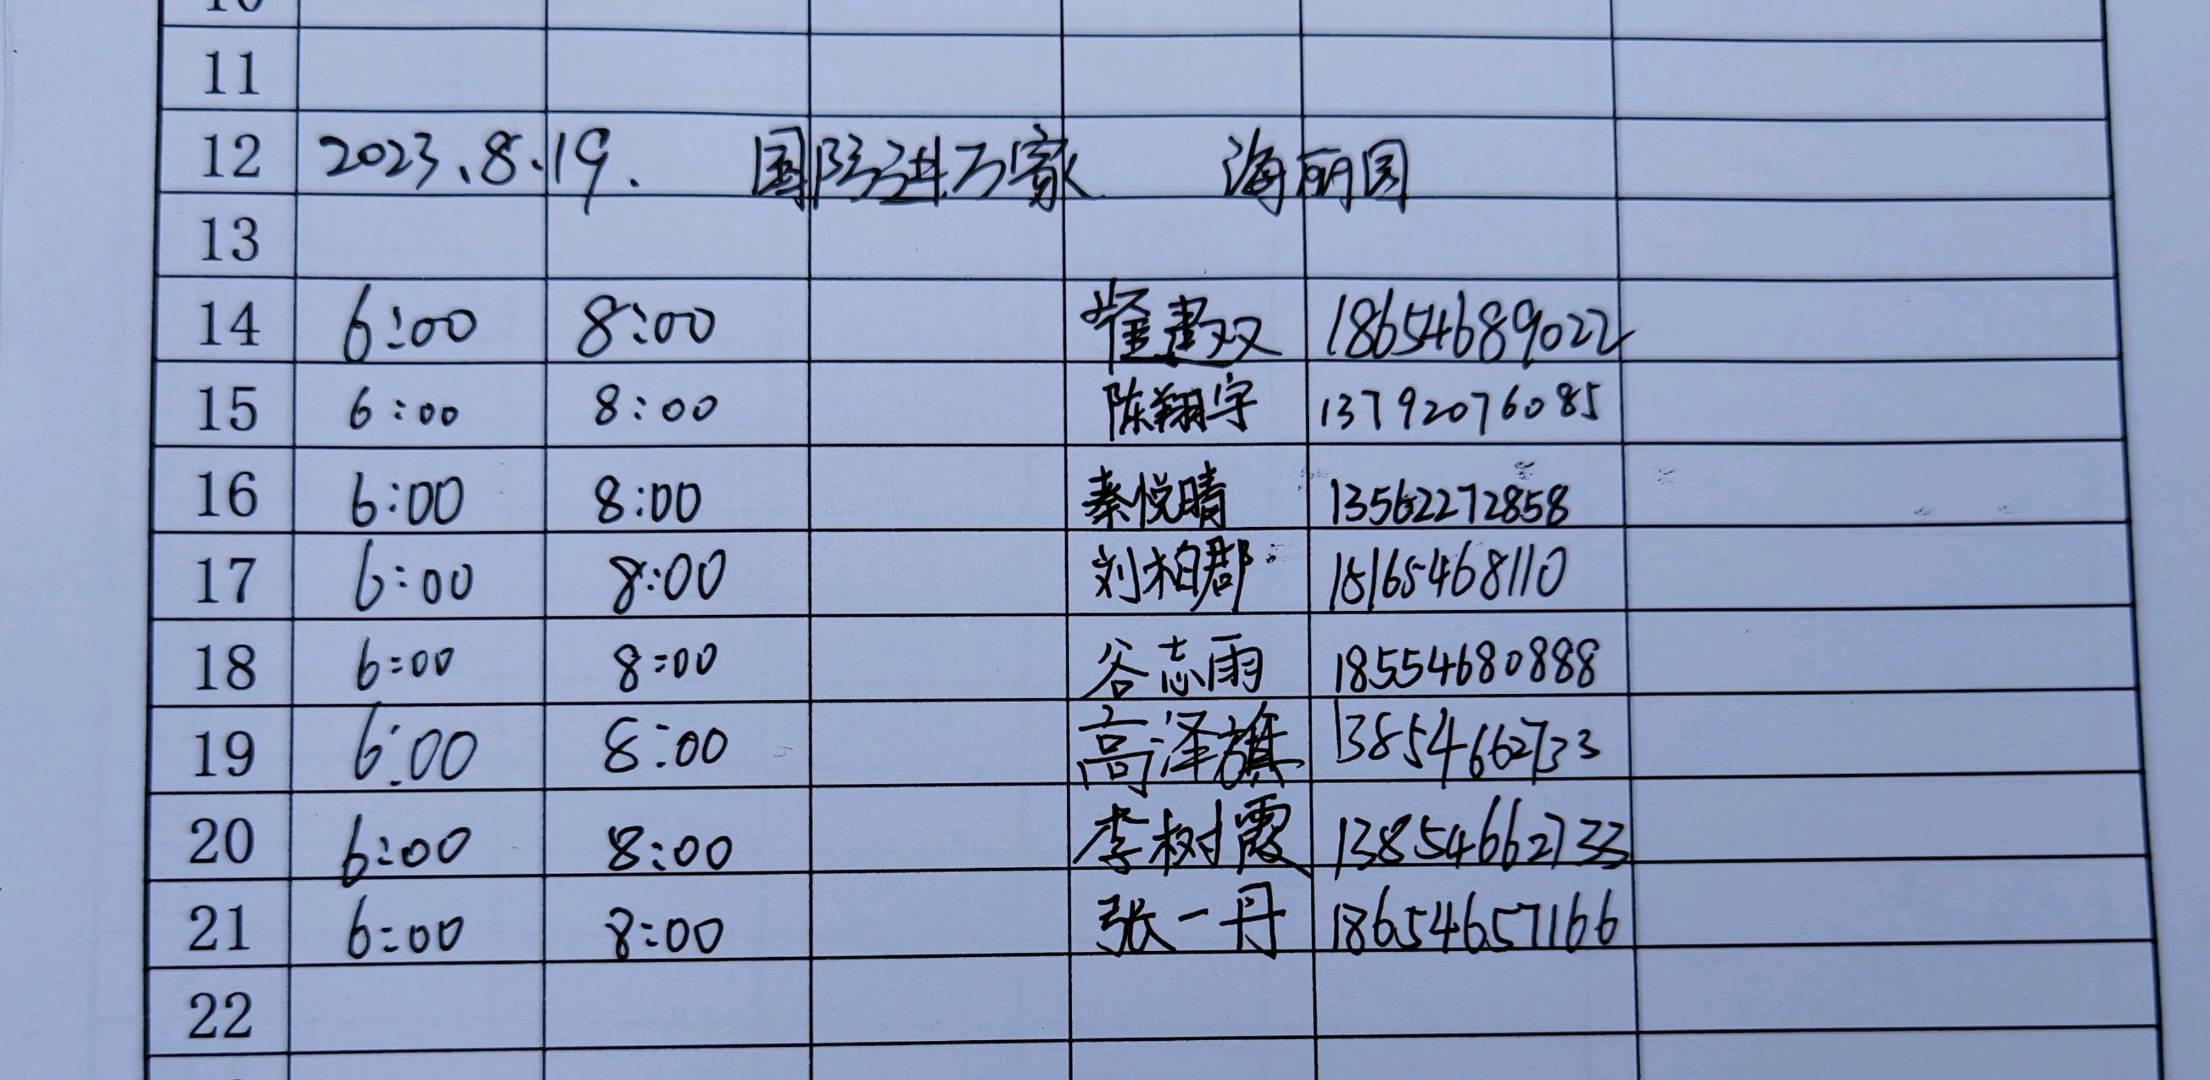 11
12 2023.8.19. 国防进万家 海丽园
13
14 6:00 8:00 崔建双 18654689022
15 6:00 8:00 陈翔宇 13792076085
16 6:00 8:00 秦悦晴 13562272858
17 6:00 8:00 刘柏郡 18165468110
18 6:00 8:00 谷志雨 18554680888
19 6:00 8:00 高泽旗 13854662733
20 6:00 8:00 李树霞 13854662733
21 6:00 8:00 张一丹 18654657166
22